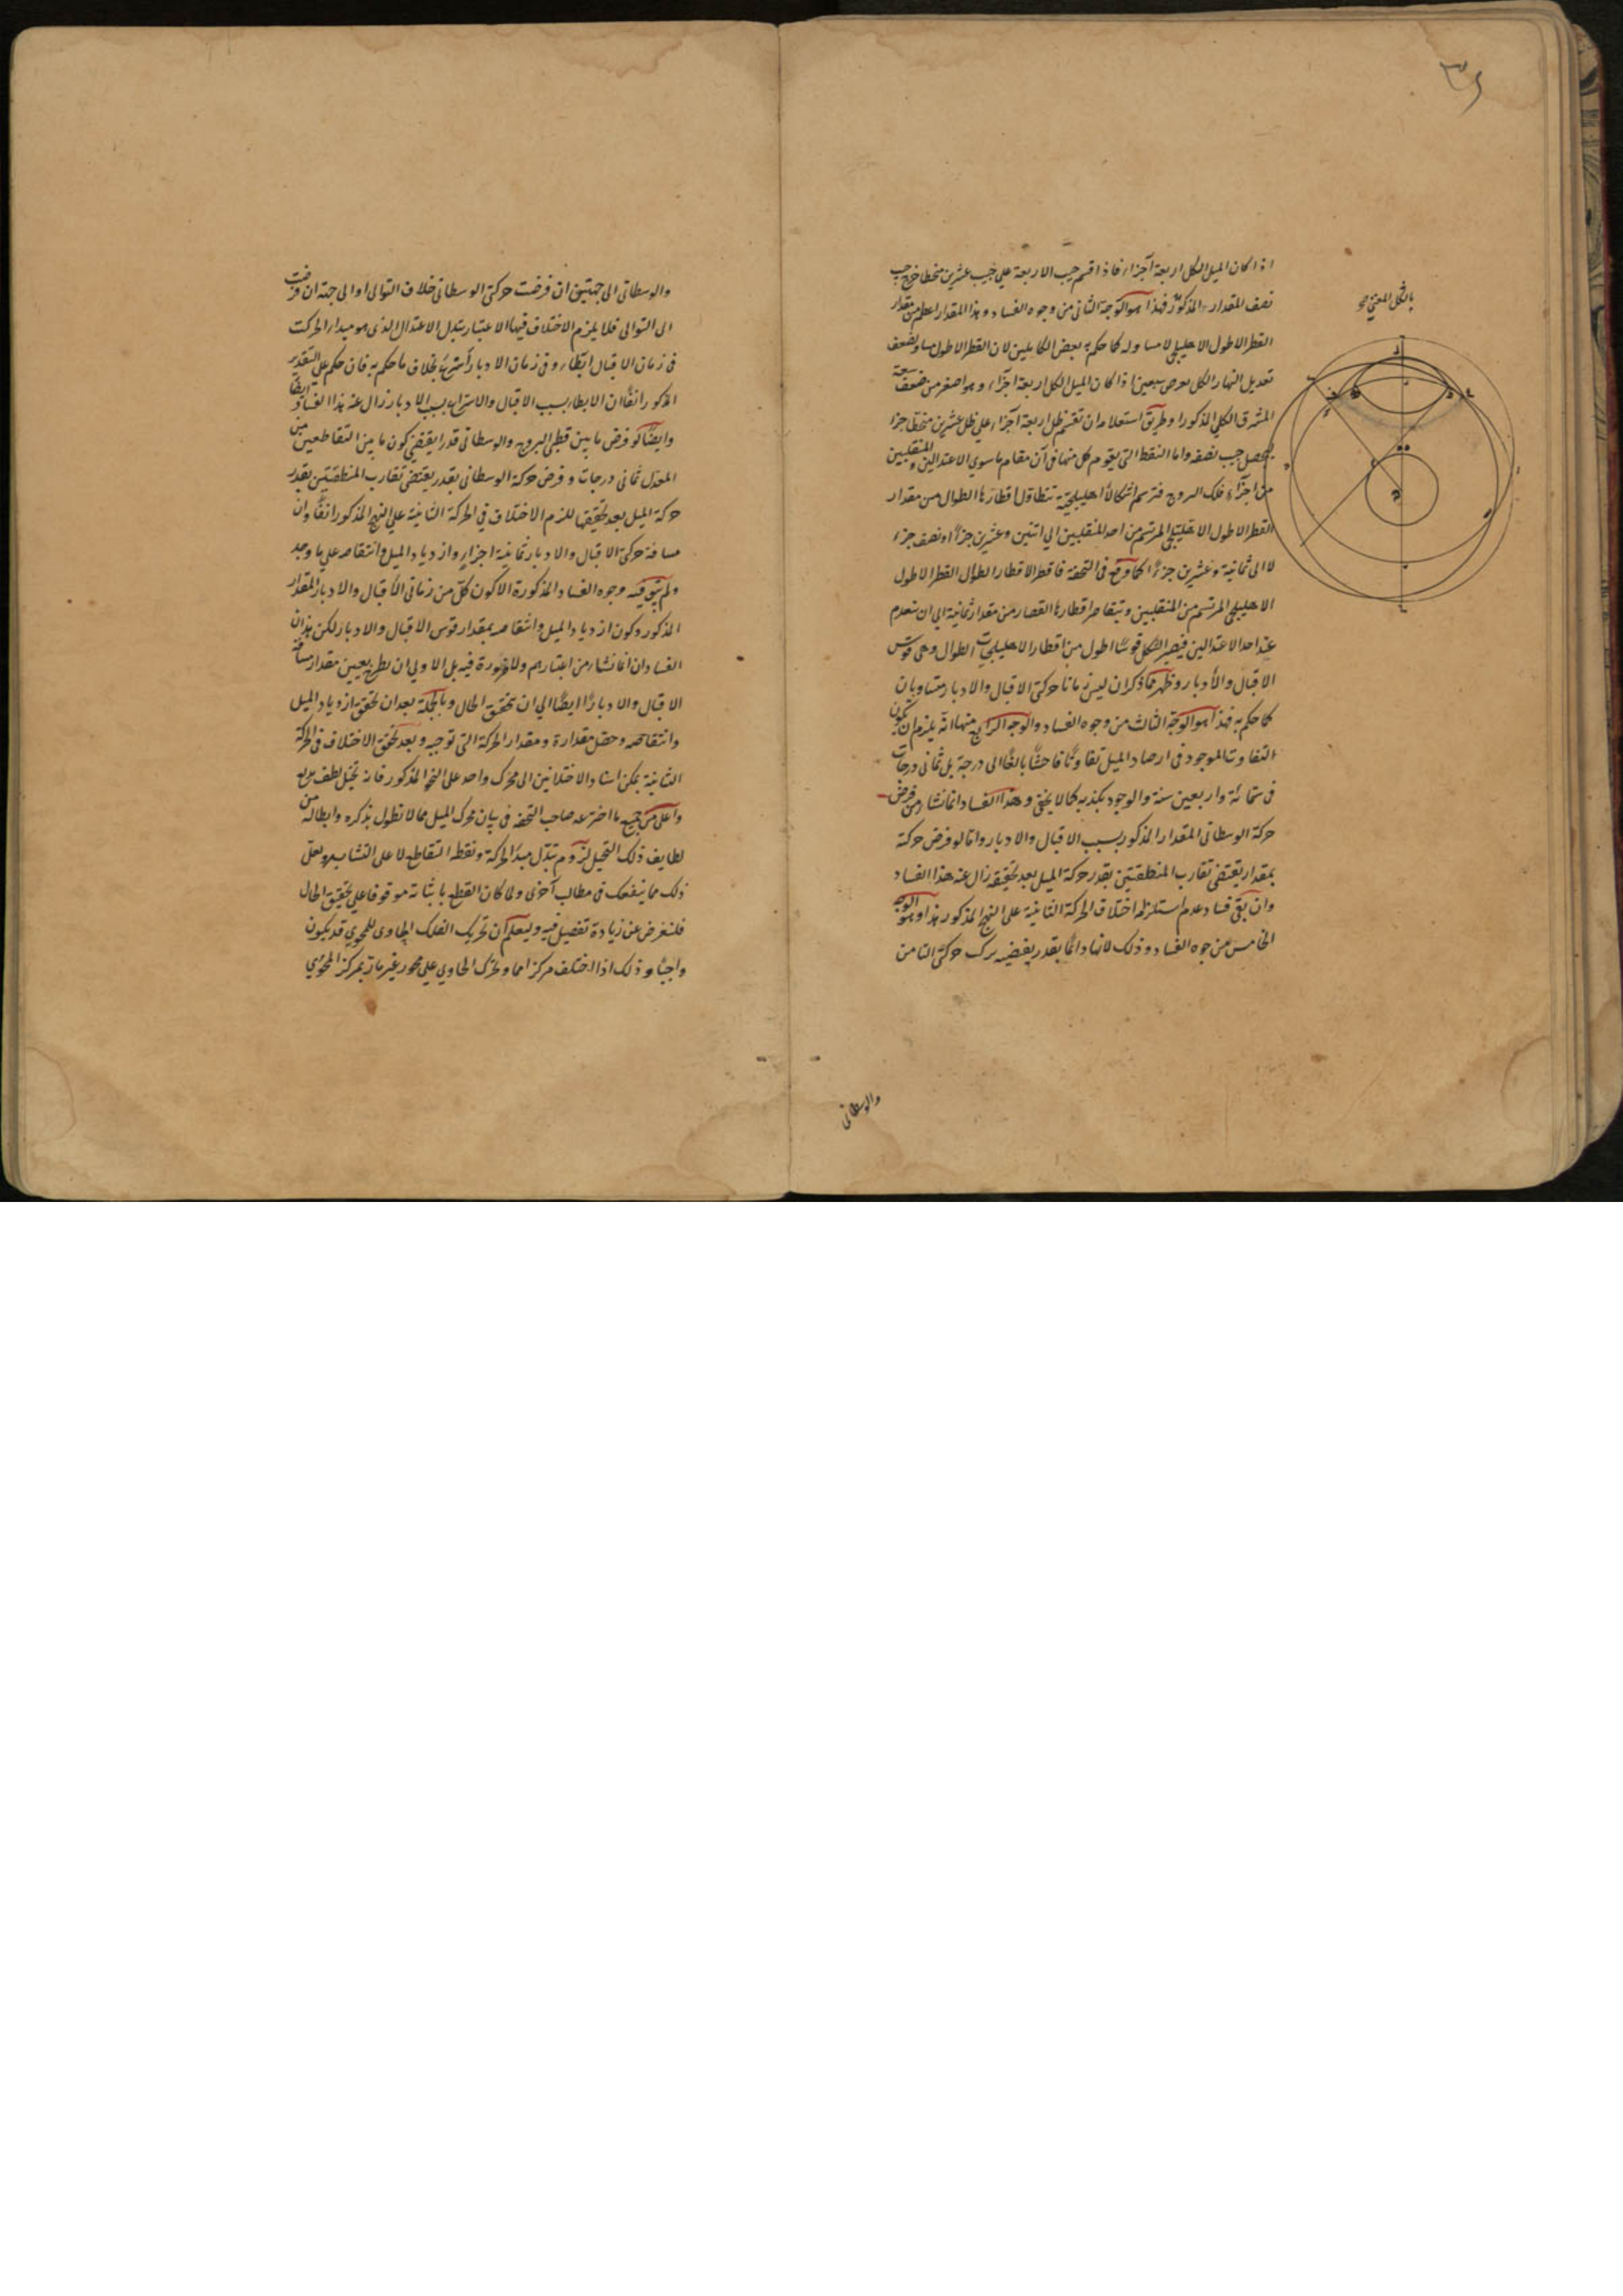 اذا كان الميل الكل اربعة اجزاء فاذا قسم جيب الاربعة على جيب عشرين منحطا خرج جيب
نصف المقدار المذكور فهذا هو الوجه الثاني من وجوه الفساد وهذا المقدار اعظم من مقدار
القطر الاطول الاهليلجي لا مساو له كما حكم به بعض الكاملين لان القطر الاطول مساو لضعف
تعديل النهار الكل لعرض سبعين اذا كان الميل الكل اربعة اجزاء وهو اصغر من ضعف سعة
المشرق الكلي المذكور وطريق استعلامه ان تقسم ظل اربعة اجزاء على ظل عشرين منحطا جزءا
ليحصل جيب نصفه واما النقط التي يقوم كل منها في آن مقام ما سوى الاعتدالين والمنقلبين
من اجزاء فلك البروج فترسم اشكالا اهليلجية تتطاول اقطارها الطوال من مقدار
القطر الاطول الاهليلجي المرتسم من احد المنقلبين الى اثنين وعشرين جزءا ونصف جزء
لا الى ثمانية وعشرين جزءا كما وقع في التحفة فاقطر الاقطار الطوال القطر الاطول
الاهليلجي المرتسم من المنقلبين ويتقاصر اقطارها القصار من مقدار ثمانية الى ان تنعدم
عند احد الاعتدالين فيصير الشكل قوسا اطول من اقطار الاهليلجيات الطوال وهي قوس
الاقبال والادبار وظهر مما ذكر ان ليس زمانا حركتي الاقبال والادبار متساويان
كما حكم به فهذا هو الوجه الثالث من وجوه الفساد والوجه الرابع منها انه يلزم ان يكون
التفاوت الموجود في ارصاد الميل تفاوتا فاحشا بالغا الى درجة بل ثماني درجات
في ستمائة واربعين سنة والوجود يكذبه كما لا يخفى وهذا الفساد انما نشأ من فرض
حركة الوسطاني المقدار المذكور بسبب الاقبال والادبار واما لو فرض حركة
بمقدار يقتضي تقارب المنطقتين بقدر حركة الميل بعد تحقيقه زال عنه هذا الفساد
وان بقى فساد عدم استلزامه اختلاف الحركة الثانية على النهج المذكور هذا وهو الوجه
الخامس من وجوه الفساد وذلك لانها دائما بقدر يقتضيه تركب حركتي الثامن
بالشكل المعني
والوسطاني
والوسطاني الى جهتين ان فرضت حركتي الوسطاني خلاف التوالي او الى جهة ان فرضت
الى التوالي فلا يلزم الاختلاف فيها الا عتبار تبدل الاعتدال الذي هو مبدأ الحركت
في زمان الاقبال ابطاء وفي زمان الادبار أسرع بخلاف ما حكم به فان حكم على التقدير
المذكور انفا ان الابطاء بسبب الاقبال والاسراع بسبب الادبار زال عنه هذا الفساد ايضا
وايضا لو فرض ما بين قطبي البروج والوسطاني قدرا يقتضي كون ما بين التقاطعين من
المعدل ثماني درجات وفرض حركة الوسطاني بقدر يقتضي تقارب المنطقتين بقدر
حركة الميل بعد تحقيقها للزم الاختلاف في الحركة الثانية على النهج المذكور انفا وان
مسافة حركتي الاقبال والادبار ثمانية اجزاء وازدياد الميل وانتقاصه على ما وجد
ولم يبق فيه وجوه الفساد المذكورة الا كون كل من زماني الاقبال والادبار المقدار
المذكور وكون ازدياد الميل وانتقاصه بمقدار قوس الاقبال والادبار لكن هذان
الفسادان انما نشاء من اعتبارهم ولا ضرورة فيه بل الاولى ان يطرح تعيين مقدار مسافة
الاقبال والادبار ايضا الى ان تحقق الحال وبالجملة بعد ان تحقق ازدياد الميل
وانتقاصه وحصل مقداره ومقدار الحركة التي توجبه وبعد تحقق الاختلاف في الحركة
الثانية يمكن اسناد الاختلافين الى محرك واحد على النهج المذكور فانه تخيل لطيف بديع
واعلى من جميع ما اخترعه صاحب التحفة في بيان محرك الميل مما لا نطول بذكره وابطاله من
لطايف ذلك التخيل لزوم تبدل مبدأ الحركة ونقطه التقاطع لا على التشابه ولعل
ذلك مما ينفعك في مطالب آخرى ولما كان القطع باثباته موقوفا على تحقيق الحال
فلنعرض عن زيادة تفصيل فيه وليعلم ان تحريك الفلك الحاوي للمحوي قد يكون
واجبا وذلك اذا اختلف مركزاهما وتحرك الحاوي على محور غير مار بمركز المحوي